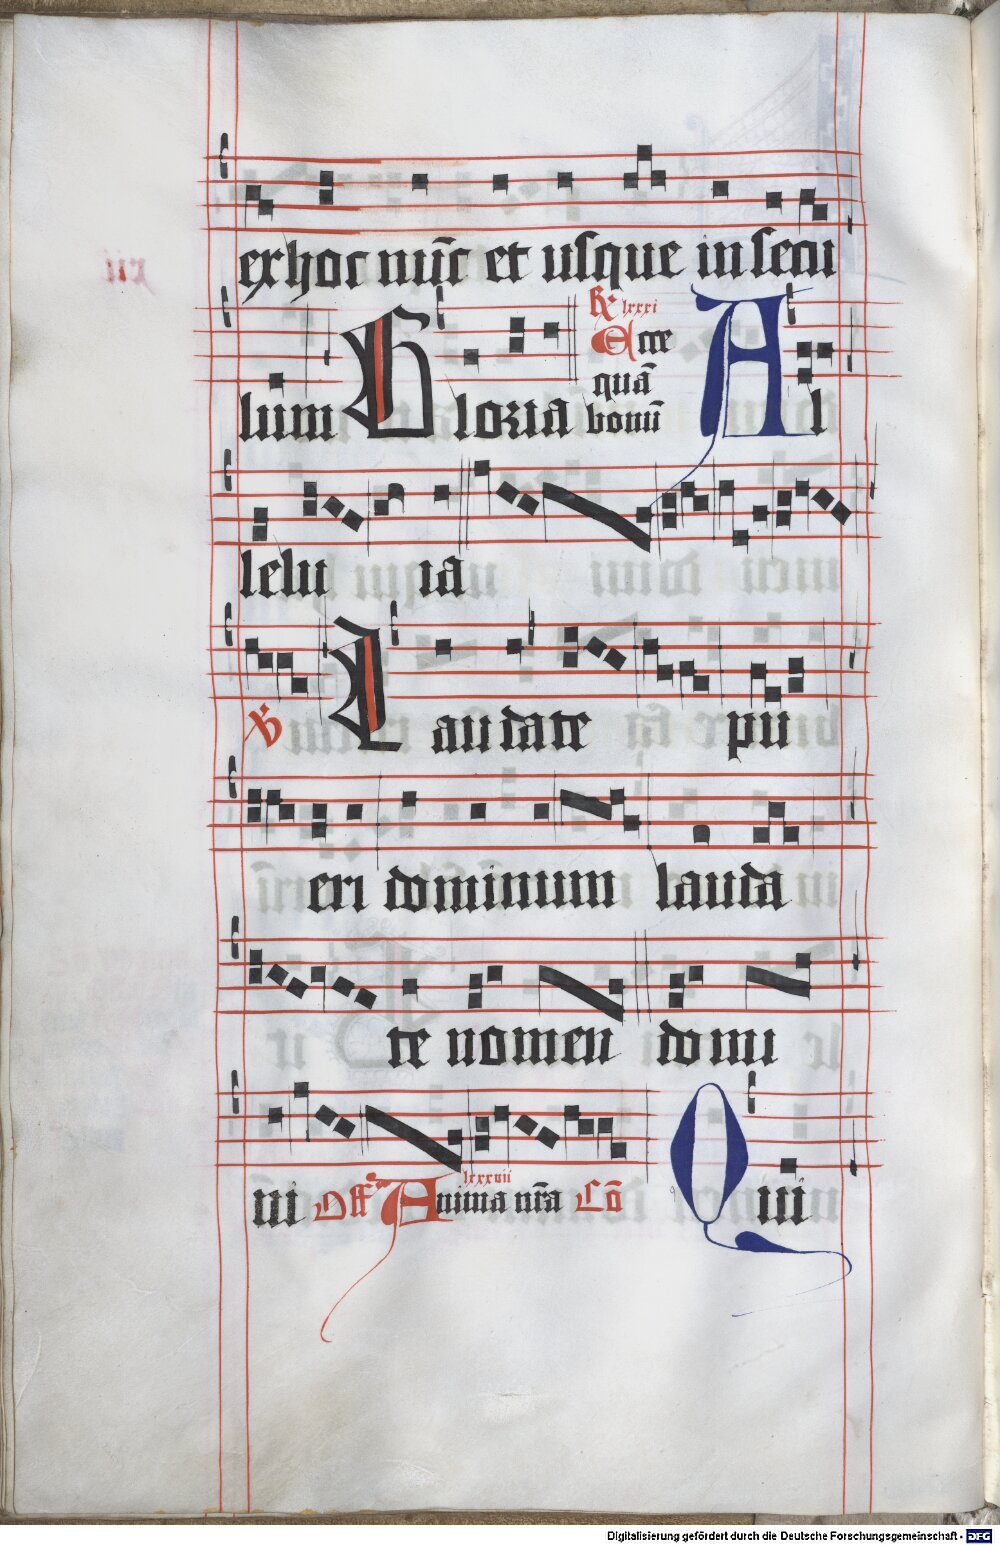 ex hoc nūc et usque in secu
lum Gloria R lxxxi Ecce quā bonū Al
lelu ia
V Laudate pu
eri dominum lauda
te nomen domi
ni Off Anima nr̄a lxxxvii Cō Qui
Digitalisierung gefördert durch die Deutsche Forschungsgemeinschaft - DFG